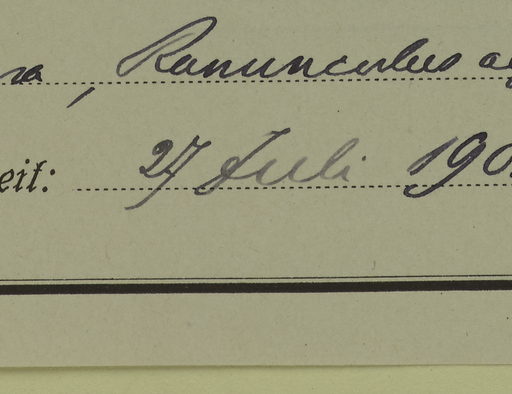 ra, Ranunculus
eit: 27 Juli 190